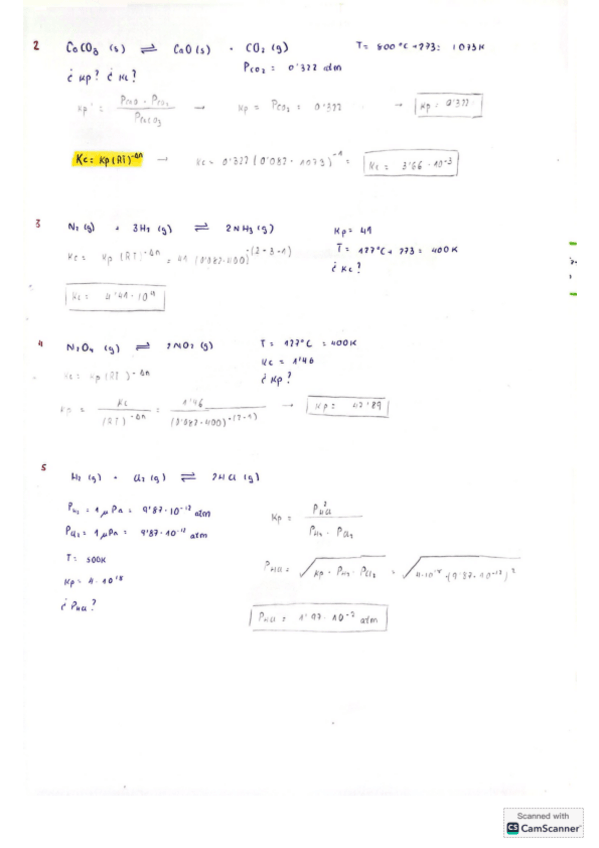 2 CaCO3 (s) ⇌ CaO (s) + CO2 (g) T= 800°C +273: 1073K
¿Kp? ¿Kc? PCO2 = 0'322 atm
Kp' = PCaO · PCO2 / PCaCO3 → Kp = PCO2 = 0'322 → Kp = 0'322
Kc = Kp (RT)^-Δn → Kc = 0'322 (0'082 · 1073)^-1 = Kc = 3'66 · 10^-3
3 N2 (g) + 3H2 (g) ⇌ 2NH3 (g) Kp = 41
Kc = Kp (RT)^-Δn = 41 (0'082·400)^-(2-3-1) T = 127°C + 273 = 400K
¿Kc?
Kc = 4'41 · 10^4
4 N2O4 (g) ⇌ 2NO2 (g) T = 127°C = 400K
Kc = 1'46
Kc = Kp (RT)^-Δn ¿Kp?
Kp = Kc / (RT)^-Δn = 1'46 / (0'082·400)^-(2-1) → Kp = 47'89
5
H2 (g) + Cl2 (g) ⇌ 2HCl (g)
PH2 = 1 μPa = 9'87·10^-12 atm Kp = PHCl^2 / PH2 · PCl2
PCl2 = 1 μPa = 9'87·10^-12 atm
T = 500K PHCl = √Kp · PH2 · PCl2 = √4·10^18 · (9'87·10^-12)^2
Kp = 4 · 10^18
¿PHCl? PHCl = 1'97 · 10^-2 atm
Scanned with
CS CamScanner